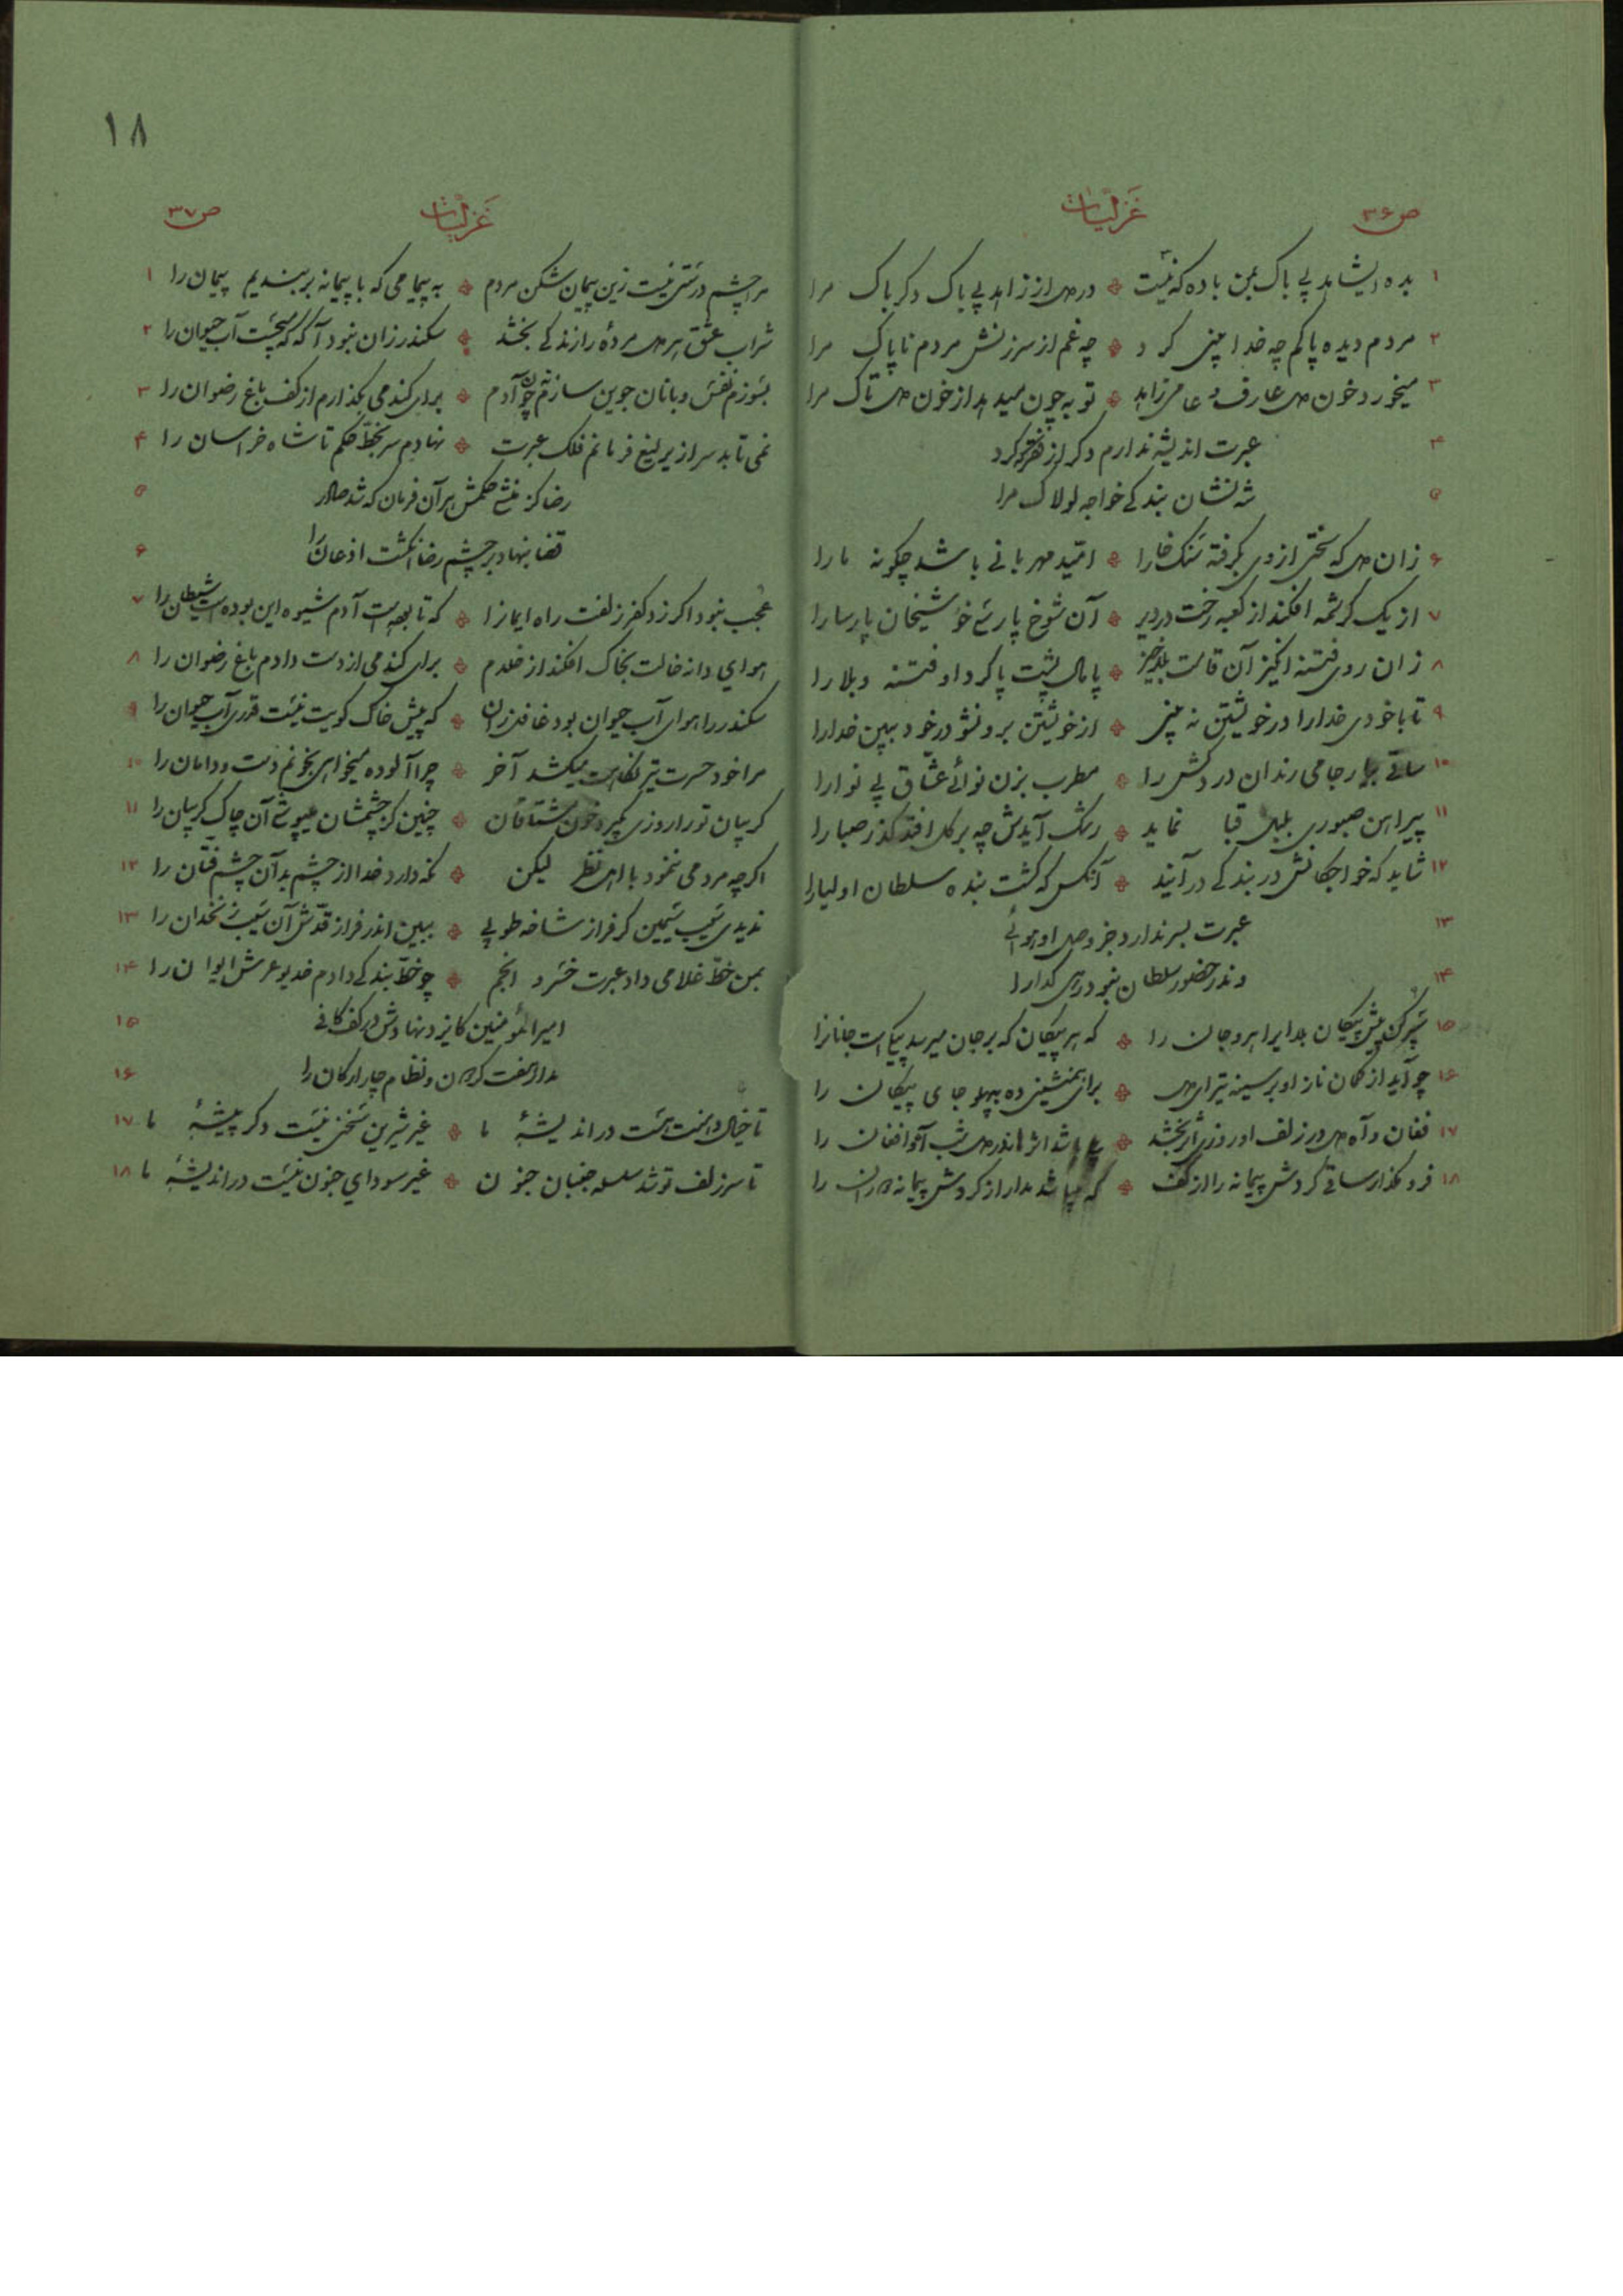 ص۳۶
غزلیات
۱ بده ایشاهد بی باک بمن باده که نیست درد از زاهد بی باک دگر باک مرا
۲ مردم دیده پاکم چه خدا بینی کرد چه غم از سرزنش مردم ناپاک مرا
۳ میخورد خون عارف و عامی زاهد توبه چون میدهد از خون تاک مرا
۴ عبرت اندیشه ندارم دگر از فتنه کرد
۵ شد نشان بندگی خواجه لولاک مرا
۶ زان که سختی از وی بگرفته سنگ خارا امّید مهربانی باشد چگونه مارا
۷ از یک کرشمه افکند از کعبه رخت در دیر آن شوخ پارسی خو شیخان پارسا را
۸ زان روی فتنه انگیز آن قامت بلاخیز پامال پشت پا کرد او فتنه و بلا را
۹ تا با خودی خدا را در خویشتن نه بینی از خویشتن برون شو در خود ببین خدا را
۱۰ ساقی بیار جامی رندان دردکش را مطرب بزن نوائے عشّاق بی نوا را
۱۱ پیراهن صبوری بلبل قبا نماید رشک آیدش چه برگل افتد گذر صبا را
۱۲ شاید که خواجگانش در بندگی درآیند آنکس که گشت بنده سلطان اولیا را
۱۳ عبرت بسر ندارد جز وصل او هوائے
۱۴ وندر حضور سلطان نبود رهی گدا را
۱۵ سپر کن پیش پیکان بلا ابرا هرو جان را که هر پیکان که بر جان میرسد پیکاست جانانرا
۱۶ چو آید از کمان ناز او بر سینه تیر ای برای همنشینی ده بپهلو جای پیکان را
۱۷ فغان و آه در زلف او روزی اثر بخشد باشد اثرها شب آه و افغان را
۱۸ فرو مگذار ساقی گردش پیمانه را از کف که میباشد مدار از گردش پیمانه را
۱۸
ص۳۷
غزلیات
۱ مرا چشم درستی نیست زین پیمان شکن مردم به پیما می که با پیمانه بربندیم پیمان را
۲ شراب عشق هر مردهٔ را زندگی بخشد سکندر زان نبود آگه که چیست آب حیوان را
۳ بسوزم نفس و با نان جوین سازم چون آدم برای گندمی بگذارم از کف باغ رضوان را
۴ نمی تابد سر از یرلیغ فرمانم فلک عبرت نهادم سر بخطّ حکم تا شاه خراسان را
۵ رضا کز منشی حکمش هر آن فرمان که شد صادر
۶ قضا بنهاد بر چشم رضا انگشت اذعان را
۷ عجب نبود اگر زد کفر زلفت راه ایمانرا که تا بودست آدم شیوه این بوده ست شیطان را
۸ هوای دانه خالت بخاک افکند از خلدم برای گندمی از دست دادم باغ رضوان را
۹ سکندر را هوای آب حیوان بود غافل زان که پیش خاک کویت نیست قدری آب حیوان را
۱۰ مرا خود حسرت تیر نگاهت میکشد آخر چرا آلوده میخواهی بخونم دست و دامان را
۱۱ گریبان تو را روزی بگیرد خون مشتاقان چنین کز چشمشان میپوشی آن چاک گریبان را
۱۲ اگرچه مردمی ننمود با اهل نظر لیکن نگه دارد خدا از چشم بد آن چشم فتّان را
۱۳ ندیدی سیب سیمین گر فراز شاخه طوبی ببین اندر فراز قدّش آن سیب زنخدان را
۱۴ بمن خطّ غلامی داد عبرت خسرو انجم چو خطّ بندگی دادم خدیو عرش ایوان را
۱۵ امیرالمؤمنین کایزد نهادش در کف کافی
۱۶ مدار هفت گردون و نظام چار ارکان را
۱۷ تا خیال دهنت هست در اندیشهٔ ما غیر شیرین سخنی نیست دگر پیشهٔ ما
۱۸ تا سر زلف تو شد سلسله جنبان جنون غیر سودای جنون نیست در اندیشهٔ ما